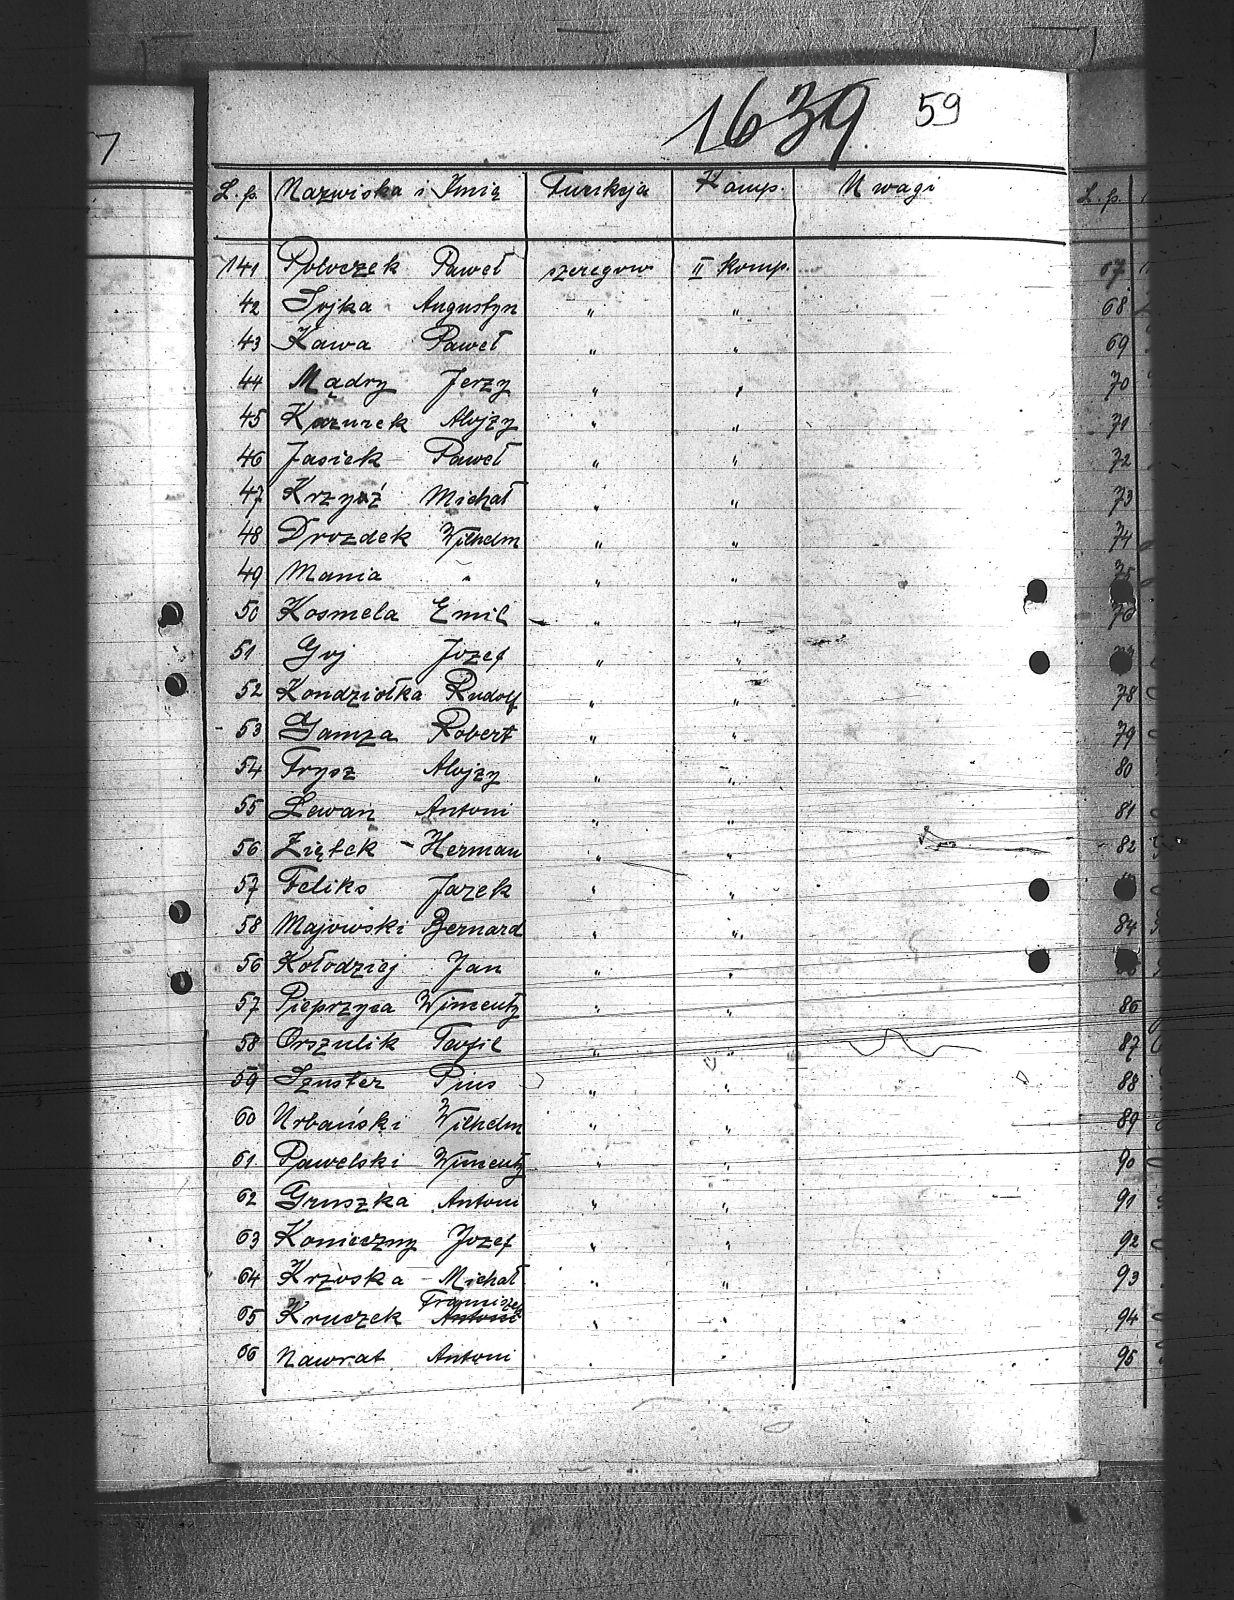 1639 59
7
L. p. Nazwiska i Imię Funkcja Komp. Uwagi
L. p.
141 Potoczek Paweł szeregow. II Komp. 67
42 Sojka Augustyn " " 68
43 Kawa Paweł " " 69
44 Mądry Jerzy " " 70
45 Kazurek Alojzy " " 71
46 Jasiek Paweł " " 72
47 Krzyż Michał " " 73
48 Drozdek Wilhelm " " 74
49 Mania " " " 75
50 Kosmela Emil " " 76
51 Goj Jozef " "
52 Kondziołka Rudolf " " 78
53 Gamza Robert " " 79
54 Frysz Alojzy " " 80
55 Lewan Antoni " " 81
56 Ziętek - Herman " " 82
57 Feliks Jarek " "
58 Majowski Bernard " " 84
56 Kołodziej Jan " "
57 Pieprzyca Wincenty " " 86
58 Orszulik Teofil " " 87
59 Szuster Pius " " 88
60 Urbański Wilhelm " " 89
61 Pawelski Wincenty " " 90
62 Gruszka Antoni " " 91
63 Konieczny Jozef " " 92
64 Krzoska - Michał " " 93
65 Kruczek Antoni Franciszek " " 94
66 Nawrat Antoni " " 95